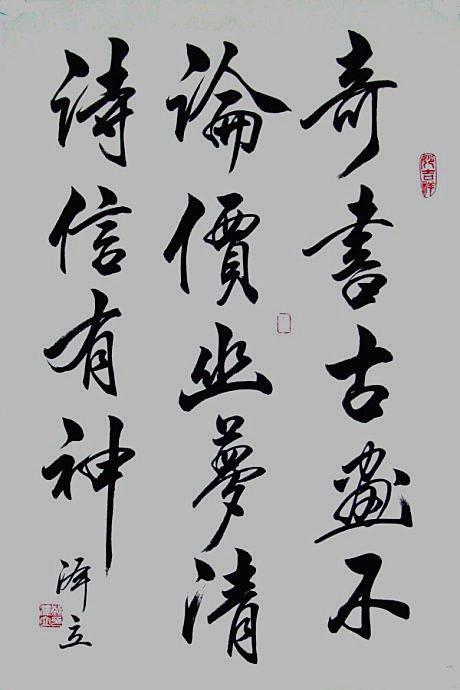 奇書古畫不
論價幽夢清
詩信有神
澤立